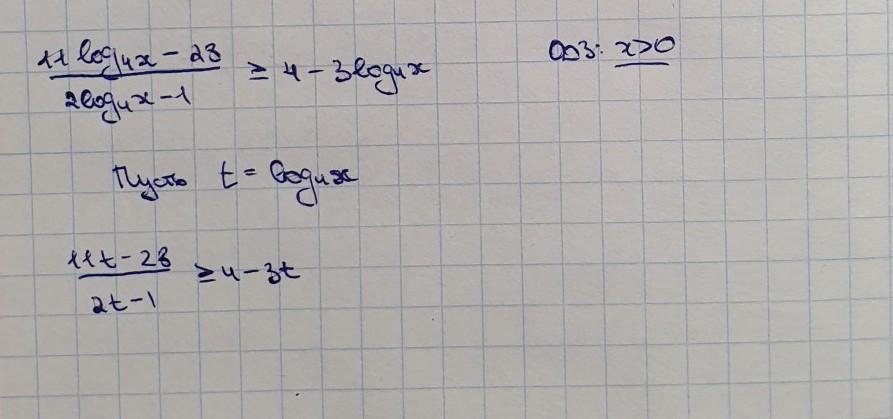 (11log₄x - 28)/(2log₄x - 1) ≥ 4 - 3log₄x ОДЗ: x>0
Пусть t = log₄x
(11t - 28)/(2t - 1) ≥ 4 - 3t